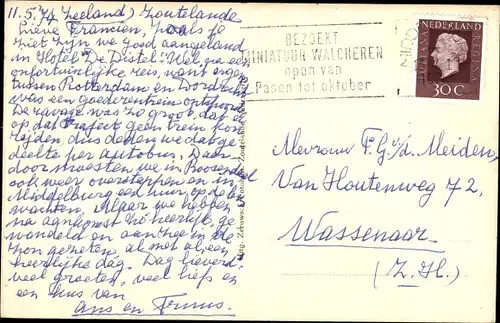 11.5.74 Zeeland) Zoutelande
Lieve Francien, zoals je
ziet zijn we goed aangeland
in Hotel De Distel. Wel na een
onfortuinlijke reis, want ergens
tussen Rotterdam en Dordrecht
was een goederentrein ontspoord.
De ravage was zo groot, dat er
op dat traject geen trein kon
rijden, dus deden we dat ge-
deelte per autobus. Daar-
door moesten we in Roosendaal
ook weer overstappen en in
Middelburg een uur op de bus
wachten. Maar we hebben
na aankomst zo heerlijk ge-
wandeld en aan thee in de
zon gezeten, al met al een
heerlijke dag. Dag lieverd,
veel groeten, veel liefs en
een kus van
Ans en Truus.
BEZOEKT
MINIATUUR WALCHEREN
open van
Pasen tot oktober
NEDERLAND
JULIANA REGINA
30 C
Mevrouw F. G. v/d. Meiden
Van Houtenweg 72,
Wassenaar
(Z. Hl.)